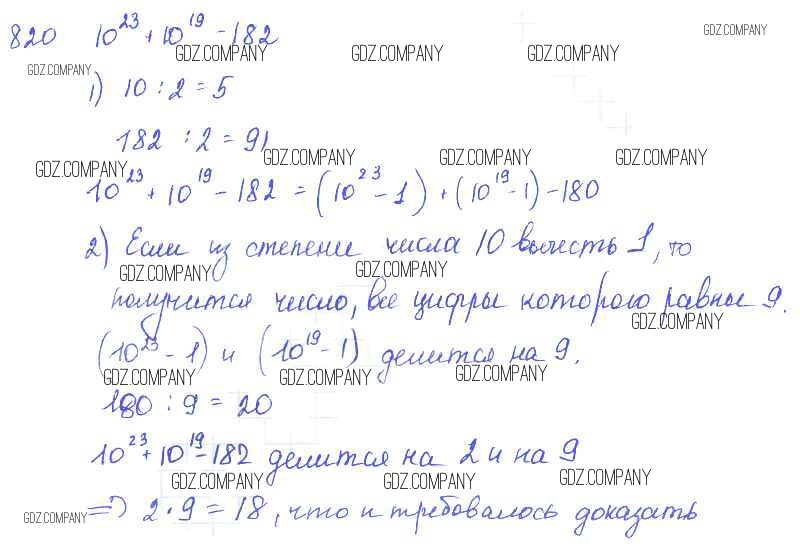 820 10²³ + 10¹⁹ - 182
GDZ.COMPANY GDZ.COMPANY GDZ.COMPANY
GDZ.COMPANY
1) 10 : 2 = 5
182 : 2 = 91
GDZ.COMPANY GDZ.COMPANY GDZ.COMPANY GDZ.COMPANY
10²³ + 10¹⁹ - 182 = (10²³ - 1) + (10¹⁹ - 1) - 180
2) Если из степени числа 10 вычесть 1, то
GDZ.COMPANY GDZ.COMPANY
получится число, все цифры которого равны 9.
GDZ.COMPANY
(10²³ - 1) и (10¹⁹ - 1) делится на 9.
GDZ.COMPANY GDZ.COMPANY GDZ.COMPANY
180 : 9 = 20
10²³ + 10¹⁹ - 182 делится на 2 и на 9
GDZ.COMPANY GDZ.COMPANY GDZ.COMPANY
GDZ.COMPANY => 2 · 9 = 18, что и требовалось доказать